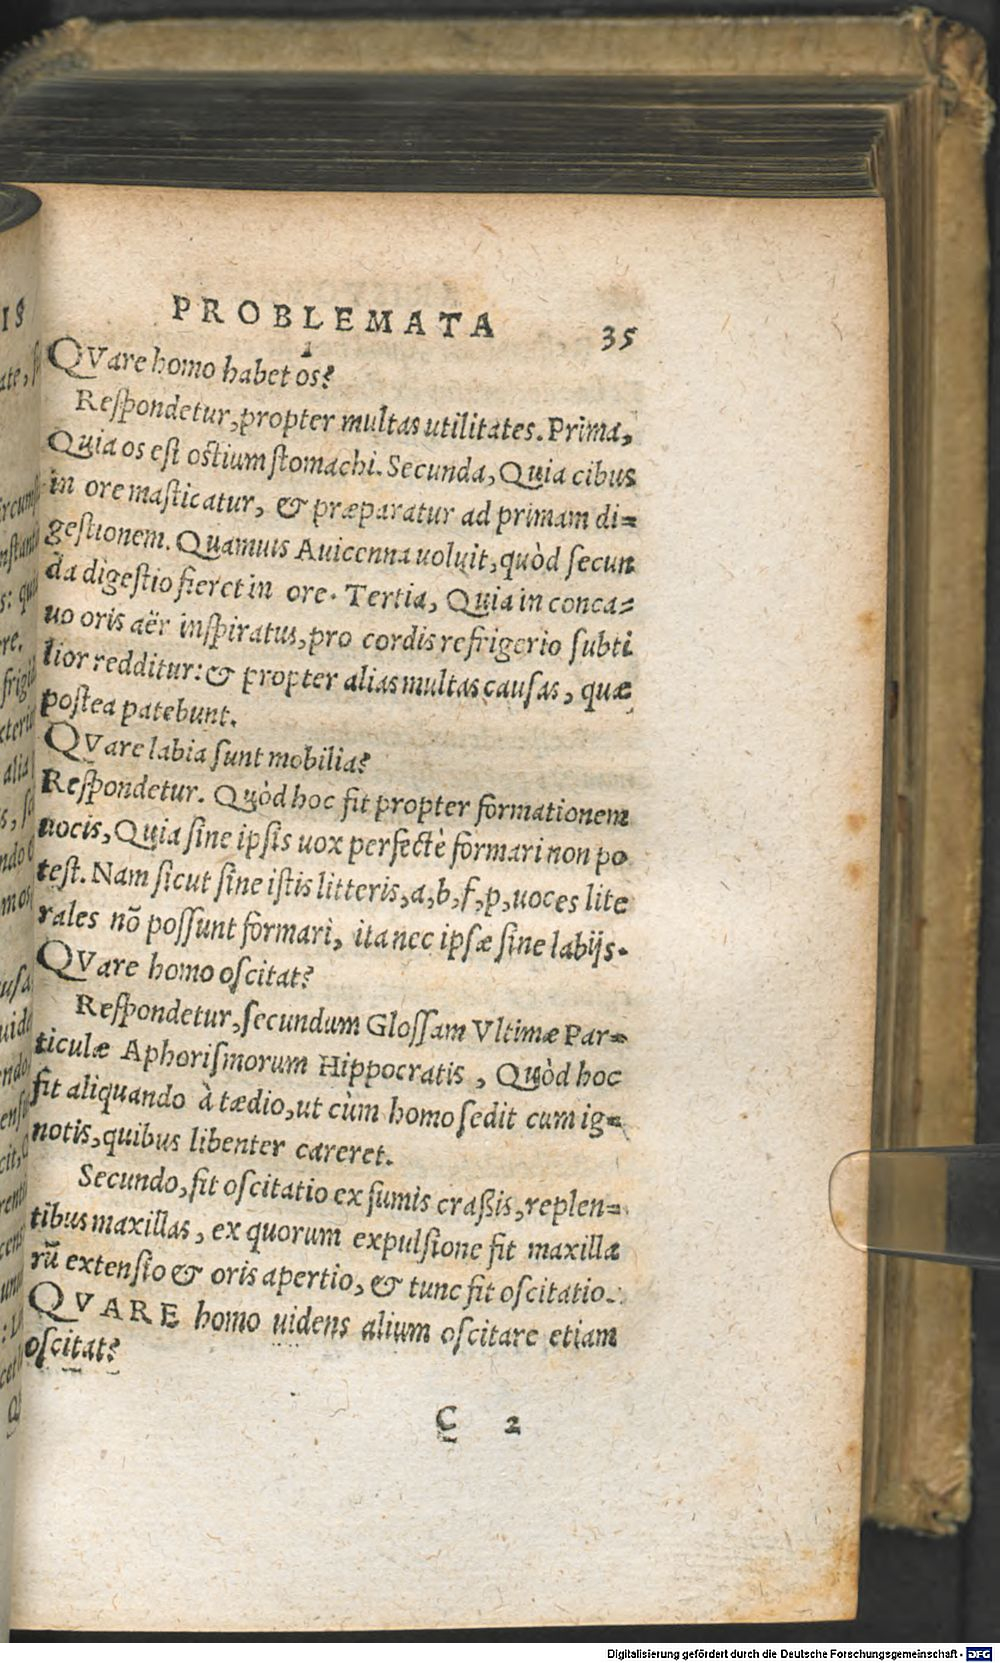 PROBLEMATA 35
QVare homo habet os?
Respondetur, propter multas utilitates. Prima,
Quia os est ostium stomachi. Secunda, Quia cibus
in ore masticatur, & præparatur ad primam di=
gestionem. Quamuis Auicenna uoluit, quòd secun
da digestio fieret in ore. Tertia, Quia in conca=
uo oris aër inspiratus, pro cordis refrigerio subti
lior redditur: & propter alias multas causas, quæ
postea patebunt.
QVare labia sunt mobilia?
Respondetur. Quòd hoc fit propter formationem
uocis, Quia sine ipsis uox perfectè formari non po
test. Nam sicut sine istis litteris, a, b, f, p, uoces lite
rales nõ possunt formari, ita nec ipsæ sine labijs.
QVare homo oscitat?
Respondetur, secundum Glossam Vltimæ Par=
ticulæ Aphorismorum Hippocratis, Quòd hoc
fit aliquando à tædio, ut cùm homo sedit cum ig=
notis, quibus libenter careret.
Secundo, fit oscitatio ex fumis craßis, replen=
tibus maxillas, ex quorum expulsione fit maxilla
rũ extensio & oris apertio, & tunc fit oscitatio.
QVARE homo uidens alium oscitare etiam
oscitat?
C 2
Digitalisierung gefördert durch die Deutsche Forschungsgemeinschaft - DFG